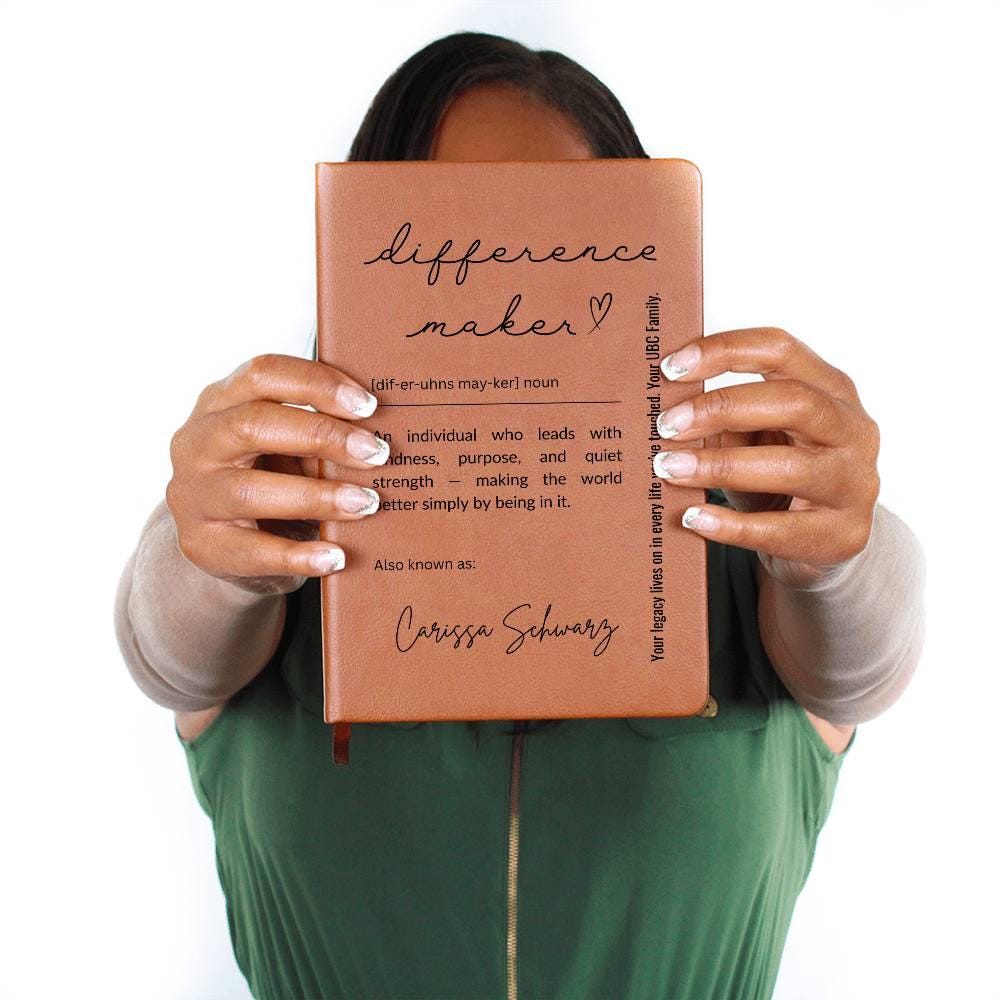 difference
maker
[dif-er-uhns may-ker] noun
An individual who leads with
kindness, purpose, and quiet
strength — making the world
better simply by being in it.
Also known as:
Carissa Schwarz
Your legacy lives on in every life you've touched. Your UBC Family.